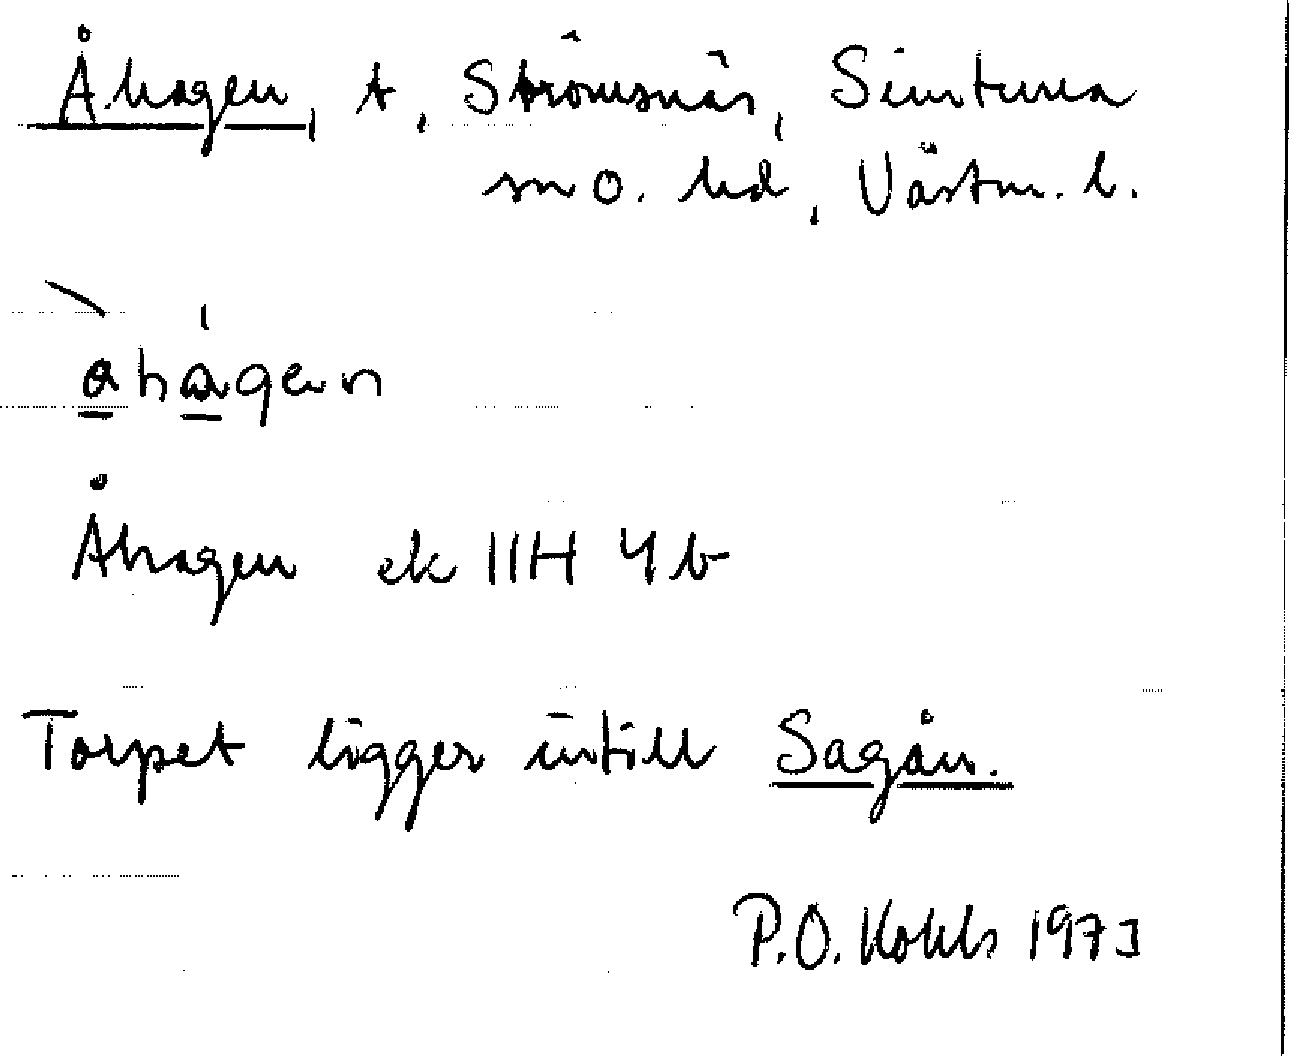 Åhagen, t, Strömsnäs, Simtuna
sn o. hd, Västm. l.
àhágen
Åhagen ek 11H 4b
Torpet ligger intill Sagån.
P.O. Kohls 1973